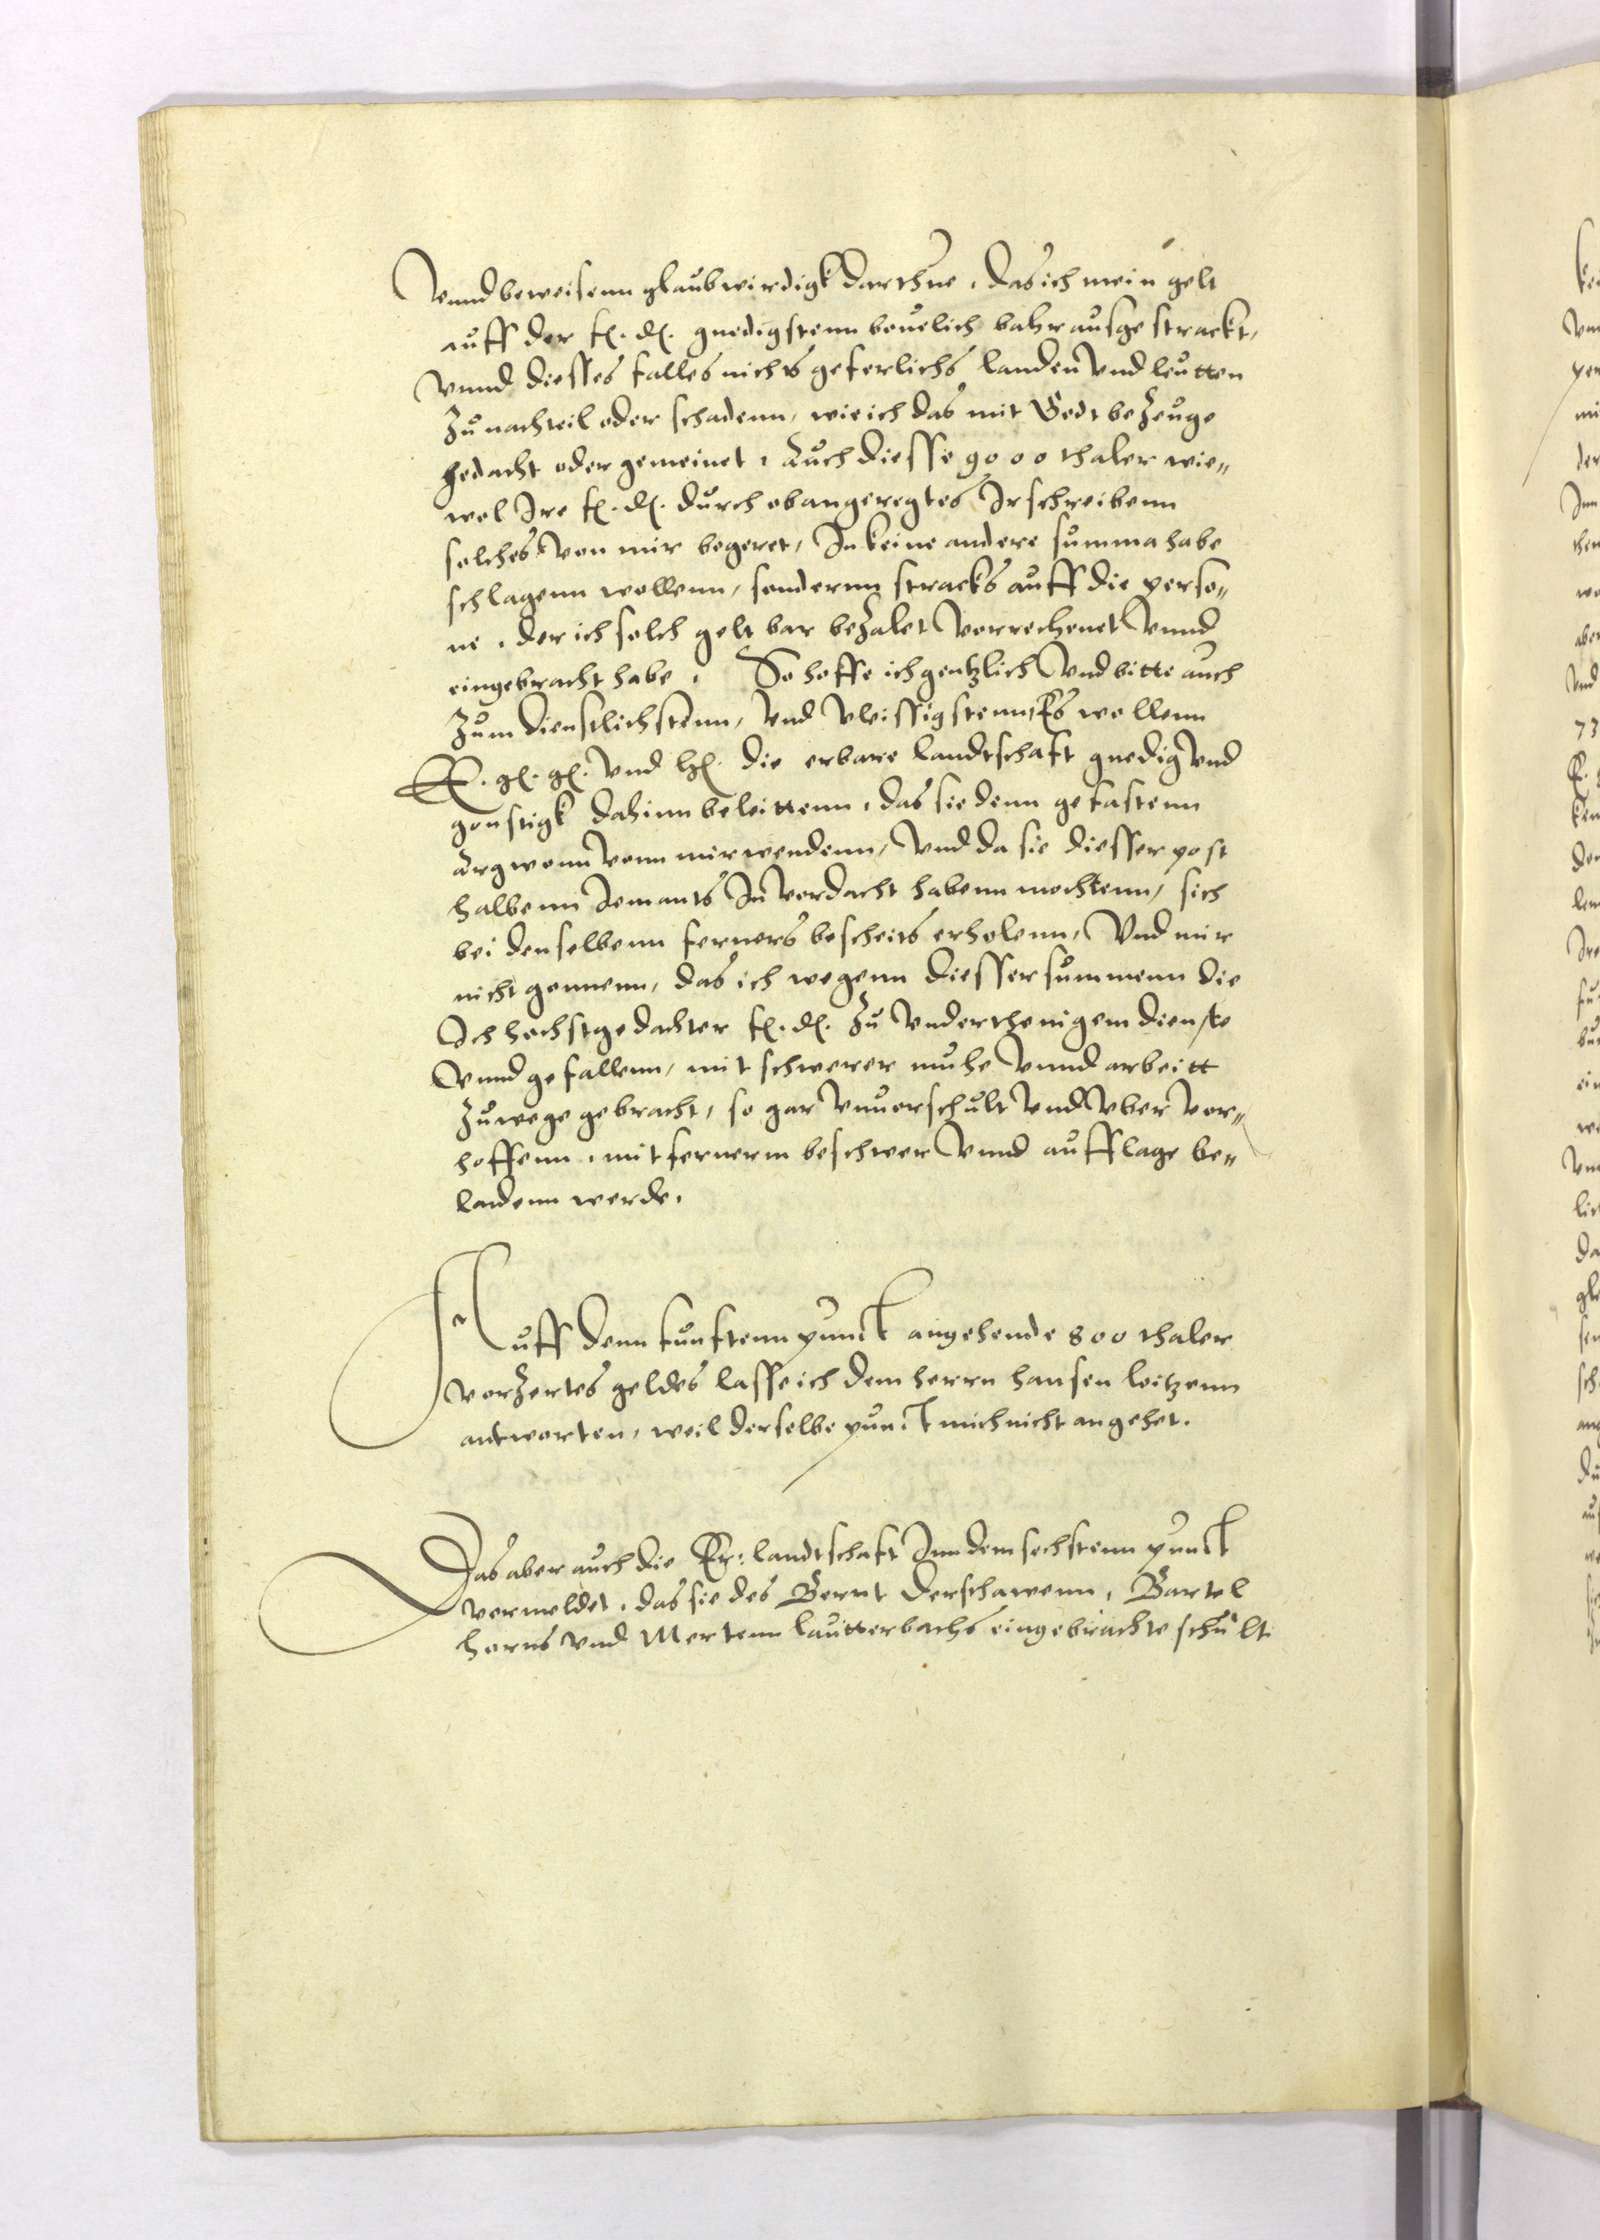 Vnnd beweisenn glaubwirdigk darthue, das ich mein gelt
auff der f. d. gnedigstenn beuelich bahr ausgestrackt,
vnnd diesses falles nichts geferlichs landen vnd leutten
zu nachteil oder schadenn, wie ich das mit Gott bezeuge
gedacht oder gemeinet, Auch diesse 9000 thaler wie„
wol Ire f. d. durch obangeregtes Ir schreibenn
solches von mir begeret, In keine andere summa habe
schlagenn wollenn, sondernn stracks auff die perso„
ne, der ich solch gelt bar bezalet verrechenet vnnd
eingebracht habe, So hoffe ich gentzlich vnd bitte auch
zum dienstlichstenn, vnd vleissigstenn, Es wollenn
E. g. g. vnd h. die erbare landtschaft gnedig vnd
gonstigk dahinn beleittenn, das sie denn gefastenn
Argwonn vonn mir wendenn, vnd da sie diesser post
halbenn Iemants In verdacht habenn mochtenn, sich
bei denselbenn ferners bescheits erholenn, Vnd mir
nicht gonnenn, das ich wegenn diesser summenn die
Ich hochstgedachter f. d. zu vnderthenigem dienste
vnnd gefallenn, mit schwerer muhe vnnd arbeitt
zuwege gebracht, so gar vnuerschult vnd vber ver„
hoffenn, mit fernerm beschwer vnnd aufflage be„
ladenn werde.
Auff denn funftenn punct angehende 800 thaler
verzertes geldes lasse ich dem herrn hansen leitzenn
antworten, weil derselbe punct mich nicht angehet.
Das aber auch die Er: landtschaft Inn dem sechstenn punct
vermeldet, das sie des Bernt Derschawenn, Bartel
horns vnd Mertenn lautterbachs eingebrachte schult